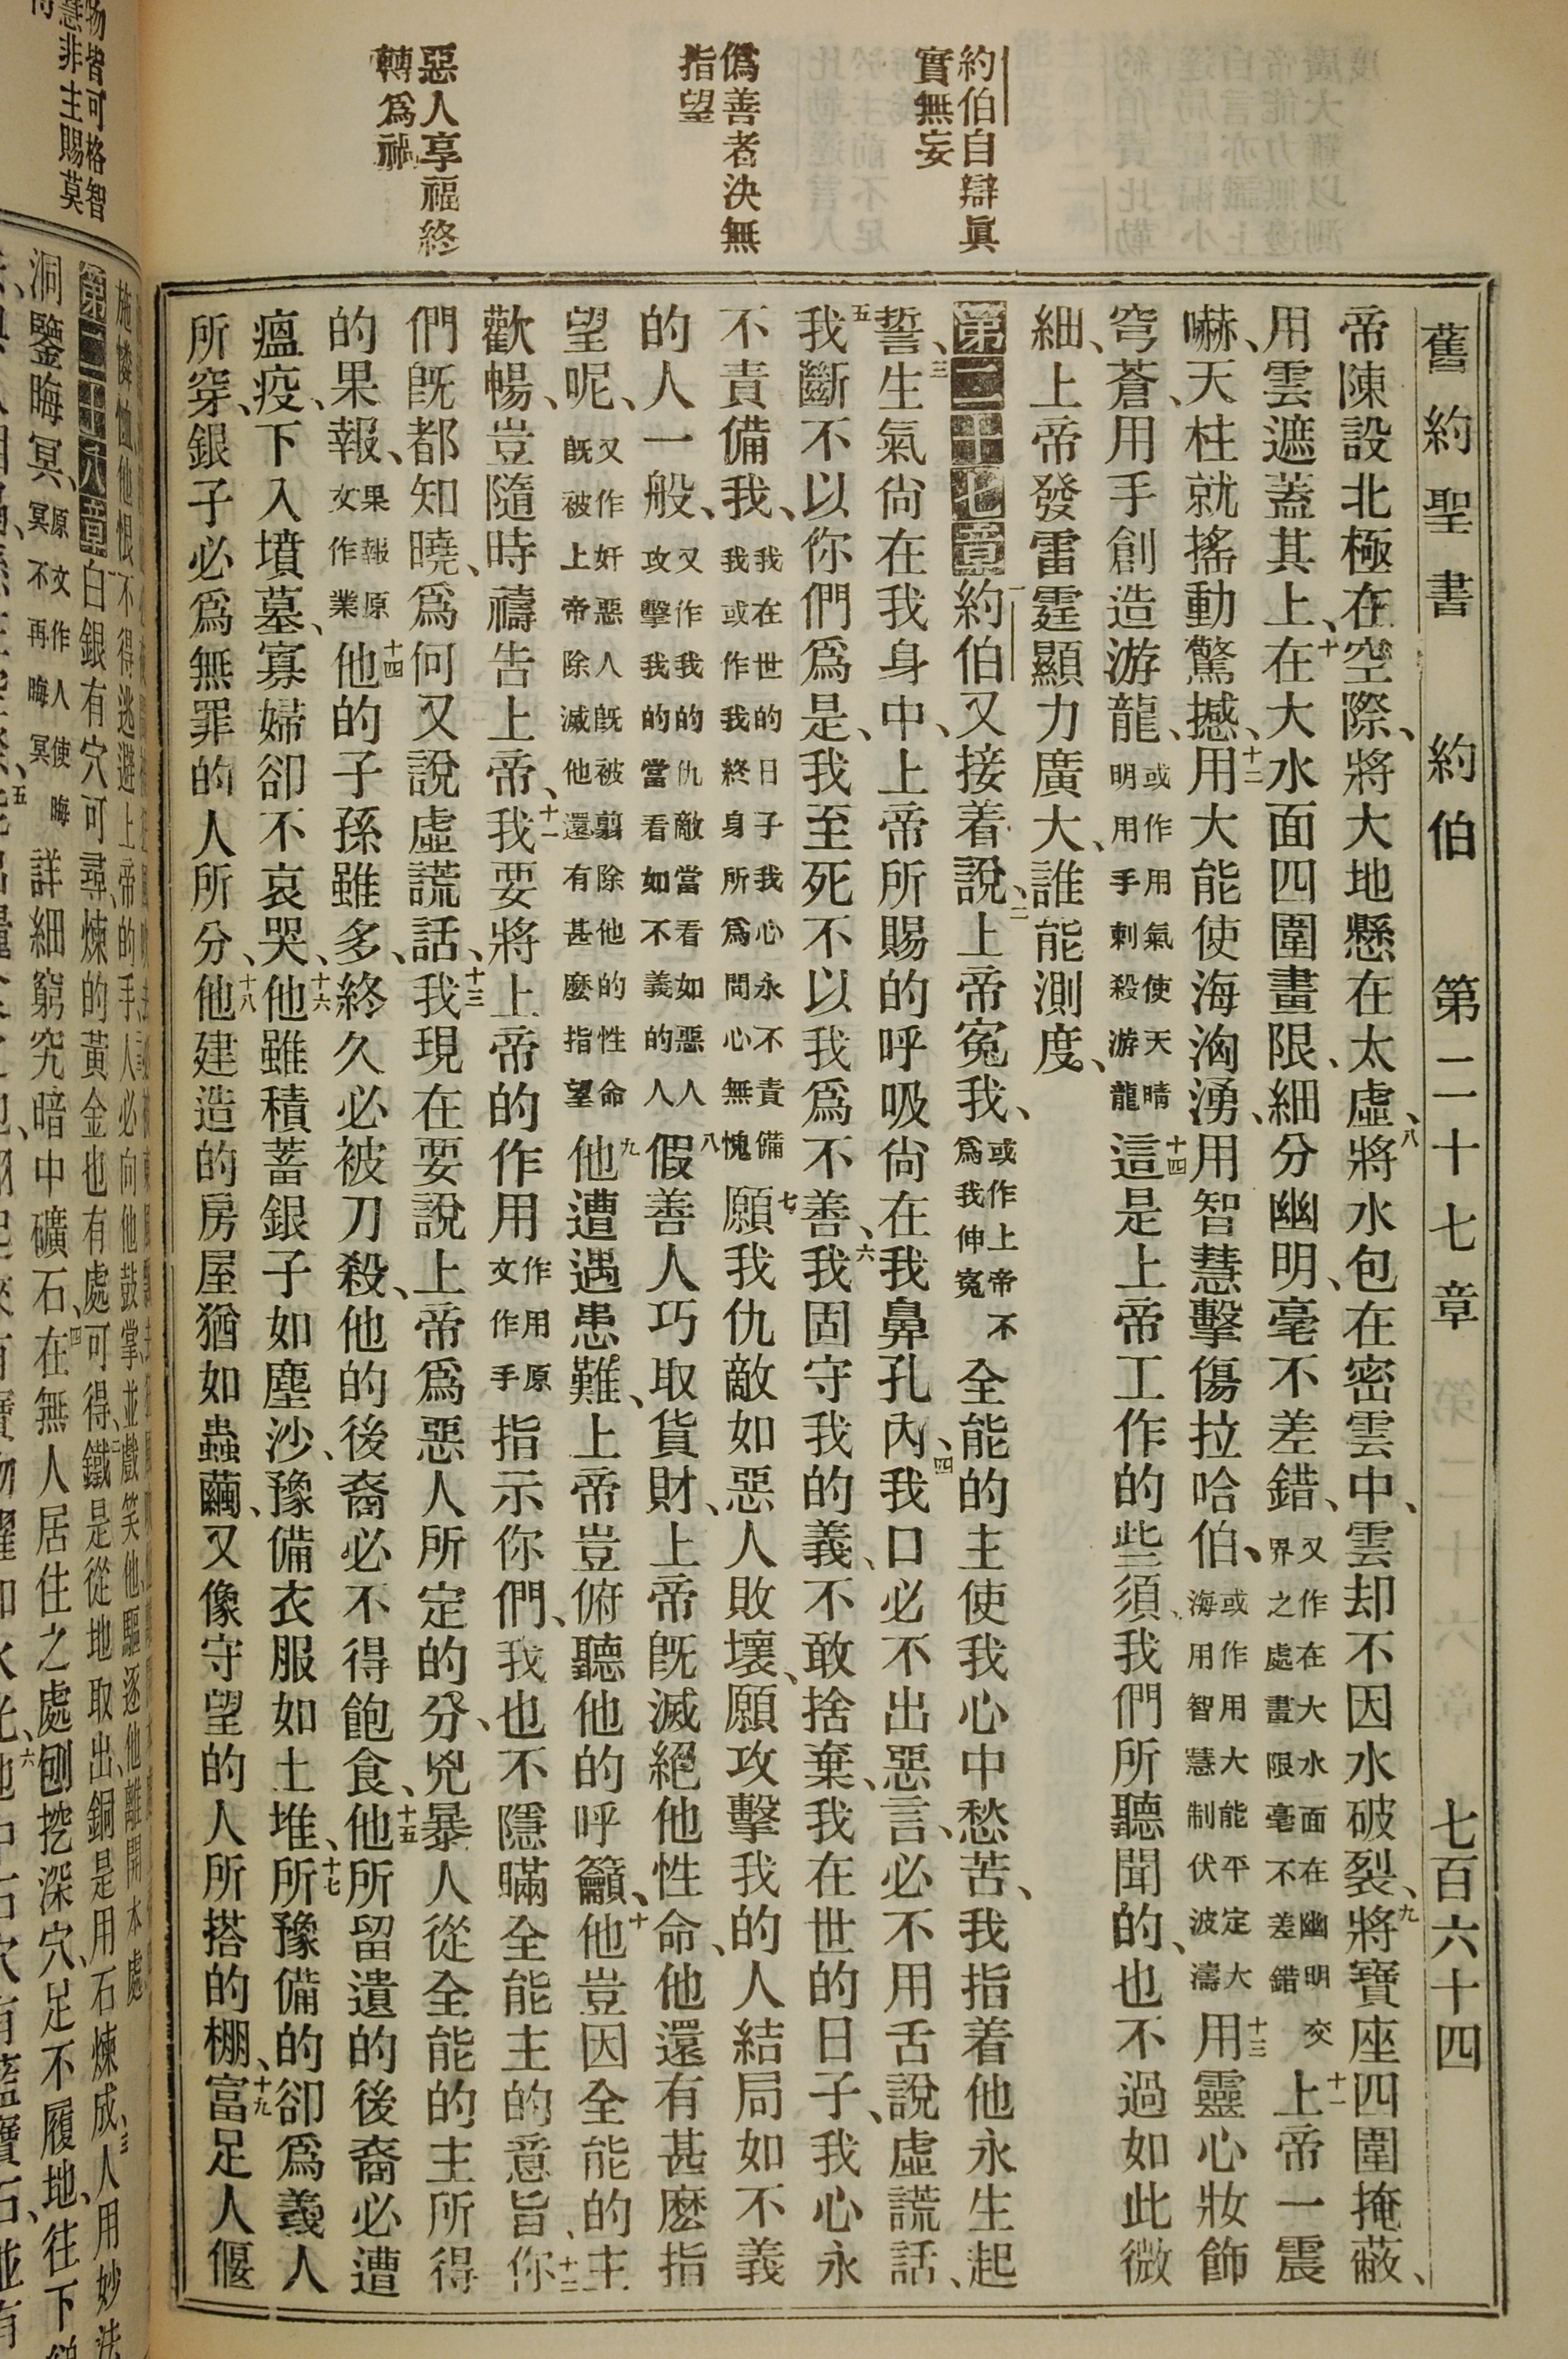 約伯自辯眞
實無妄
僞善者決無
指望
惡人享福終
轉爲禍
舊約聖書 約伯 第二十七章 七百六十四
帝陳設北極在空際、將大地懸在太虛、八將水包在密雲中、雲却不因水破裂、九將寶座四圍掩蔽、
用雲遮蓋其上、十在大水面四圍畫限、細分幽明、毫不差錯、又作在大水面在幽明交界之處畫限毫不差錯十一上帝一震
嚇、天柱就搖動驚撼、十二用大能使海洶湧、用智慧擊傷拉哈伯、或作用大能平定大海用智慧制伏波濤十三用靈心妝飾
穹蒼、用手創造游龍、或作用氣使天晴明用手刺殺游龍十四這是上帝工作的些須、我們所聽聞的、也不過如此微
細、上帝發雷霆顯力廣大、誰能測度、
第二十七章一約伯又接着說、二上帝寃我、或作上帝不爲我伸寃全能的主使我心中愁苦、我指着他永生起
誓、三生氣尙在我身中、上帝所賜的呼吸尙在我鼻孔內、四我口必不出惡言、必不用舌說虛謊話、
五我斷不以你們爲是、我至死不以我爲不善、六我固守我的義、不敢捨棄、我在世的日子、我心永
不責備我、我在世的日子我心永不責備我或作我終身所爲問心無愧七願我仇敵如惡人敗壞、願攻擊我的人結局如不義
的人一般、又作我的仇敵當看如惡人攻擊我的當看如不義的人八假善人巧取貨財、上帝旣滅絕他性命、他還有甚麽指
望呢、又作奸惡人旣被翦除他的性命旣被上帝除滅他還有甚麽指望九他遭遇患難、上帝豈俯聽他的呼籲、十他豈因全能的主
歡暢、豈隨時禱告上帝、十一我要將上帝的作用作用原文作手指示你們、我也不隱瞞全能主的意旨、十二你
們旣都知曉、爲何又說虛謊話、十三我現在要說上帝爲惡人所定的分、兇暴人從全能的主所得
的果報、果報原文作業十四他的子孫雖多、終久必被刀殺、他的後裔必不得飽食、十五他所留遺的後裔必遭
瘟疫、下入墳墓、寡婦卻不哀哭、十六他雖積蓄銀子如塵沙、豫備衣服如土堆、十七所豫備的卻爲義人
所穿、銀子必爲無罪的人所分、十八他建造的房屋猶如蟲繭、又像守望的人所搭的棚、十九富足人偃
物皆可格智
慧非主賜莫
第二十八章 白銀有穴可尋、煉的黃金也有處可得、二鐵是從地取出、銅是用石煉成、三人用妙法
洞鑒晦冥、原文作人使晦冥不再晦冥詳細窮究暗中礦石、四在無人居住之處刨挖深穴、足不履地、往下